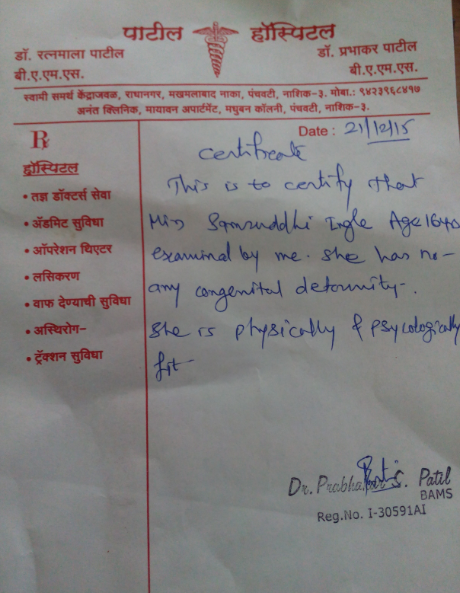 पाटील हॉस्पिटल
डॉ. रत्नमाला पाटील
बी.ए.एम.एस.
डॉ. प्रभाकर पाटील
बी.ए.एम.एस.
स्वामी समर्थ केंद्राजवळ, राधानगर, मखमलाबाद नाका, पंचवटी, नाशिक-३. मोबा.: ९४२३९६८४१७
अनंत क्लिनिक, मायावन अपार्टमेंट, मधुबन कॉलनी, पंचवटी, नाशिक-३.
Rx
Date : 21/12/15
हॉस्पिटल
• तज्ञ डॉक्टर्स सेवा
• ॲडमिट सुविधा
• ऑपरेशन थिएटर
• लसिकरण
• वाफ देण्याची सुविधा
• अस्थिरोग-
• ट्रॅक्शन सुविधा
Certificate
This is to certify that
Miss Samruddhi Ingle Age 16 yrs
examinal by me. She has no-
any congenital detormity-.
She is physically & psycologically
fit-
Dr. Prabhakar S. Patil
BAMS
Reg.No. I-30591AI